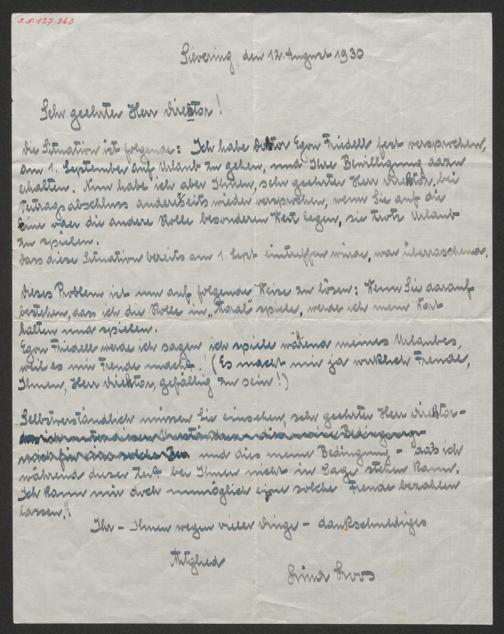 I.N.127.363
Sievering, den 12. August 1930
Sehr geehrter Herr Direktor!
die Situation ist folgende: Ich habe Doktor Egon Friedell fest versprochen,
am 1. September auf Urlaub zu gehen, und Ihre Bewilligung dazu
erhalten. Nun habe ich aber Ihnen, sehr geehrter Herr Direktor, bei
Vertragsabschluss anderseits wieder versprochen, wenn Sie auf die
eine oder die andere Rolle besonderen Wert legen, sie trotz Urlaub
zu spielen.
Dass diese Situation bereits am 1. Sept eintreffen würde, war überraschend.
Dieses Problem ist nun auf folgende Weise zu lösen: Wenn Sie darauf
bestehen, dass ich die Rolle in „ spiele, werde ich mein Wort
halten und spielen.
Egon Friedell werde ich sagen ich spiele wärend meines Urlaubes,
weil es mir Freude macht! (Es macht mir ja wirklich Freude,
Ihnen, Herr Direktor, gefällig zu sein!)
Selbstverständlich müssen Sie einsehen, sehr geehrter Herr Direktor-
und dies meine Bedingung, - dass ich
während dieser Zeit bei Ihnen nicht in Gage stehen kann.
Ich kann mir doch unmöglich eine solche Freude bezahlen
lassen!!
Ihr - Ihnen wegen vieler Dinge - dankschuldiges
Mitglied
Lina Loos